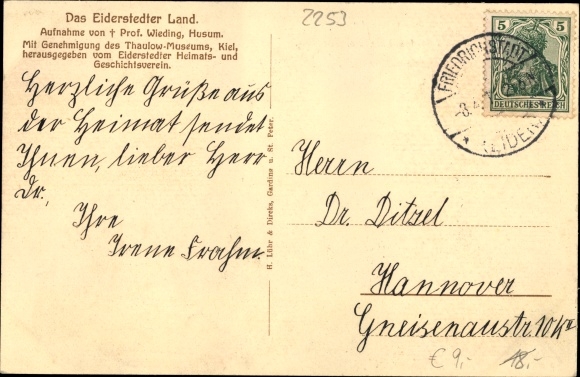 Das Eiderstedter Land.
Aufnahme von † Prof. Wieding, Husum.
Mit Genehmigung des Thaulow-Museums, Kiel,
herausgegeben vom Eiderstedter Heimats- und
Geschichtsverein.
2253
Herzliche Grüße aus
der Heimat sendet
Ihnen, lieber Herr
Dr,
Ihre
Irene Frahm.
H. Lühr & Dircks, Garding u. St. Peter.
5 5
DEUTSCHES REICH
FRIEDRICHSTADT
(EIDER)
Herrn
Dr. Ditzel
Hannover
Gneisenaustr. 10
€ 9,- 18,-